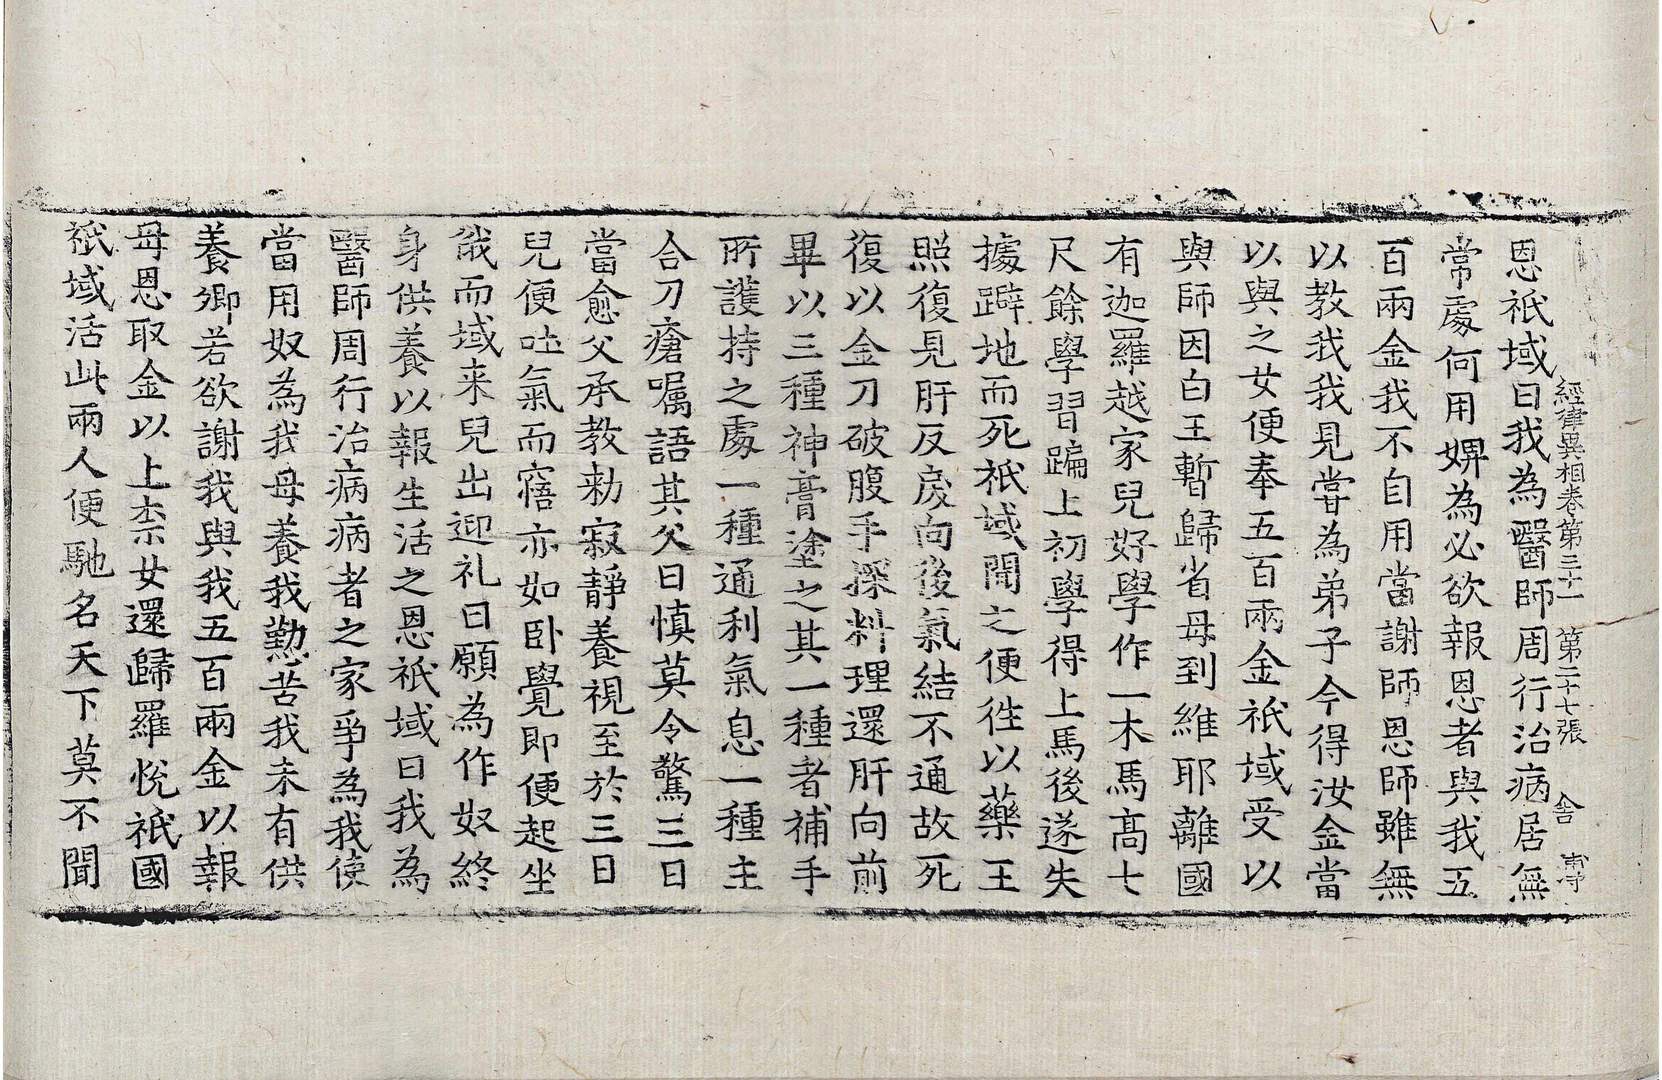 恩祇域曰我為醫師周行治病居無
經律異相卷第三十一 第二十七張 舍
常處何用婢為必欲報恩者與我五
百兩金我不自用當謝師恩師雖無
以教我我見甞為弟子今得汝金當
以與之女便奉五百兩金祇域受以
與師因白王暫歸省母到維耶離國
有迦羅越家兒好學作一木馬高七
尺餘學習騗上初學得上馬後遂失
據躃地而死祇域聞之便徃以藥王
照復見肝反戾向後氣結不通故死
復以金刀破腹手探料理還肝向前
畢以三種神膏塗之其一種者補手
所護持之處一種通利氣息一種主
合刀瘡囑語其父曰慎莫令驚三日
當愈父承教勑寂靜養視至於三日
兒便吐氣而寤亦如卧覺即便起坐
俄而域来兒出迎礼曰願為作奴終
身供養以報生活之恩祇域曰我為
醫師周行治病病者之家爭為我使
當用奴為我母養我懃苦我未有供
養卿若欲謝我與我五百兩金以報
母恩取金以上柰女還歸羅悅祇國
祇域活此兩人便馳名天下莫不聞